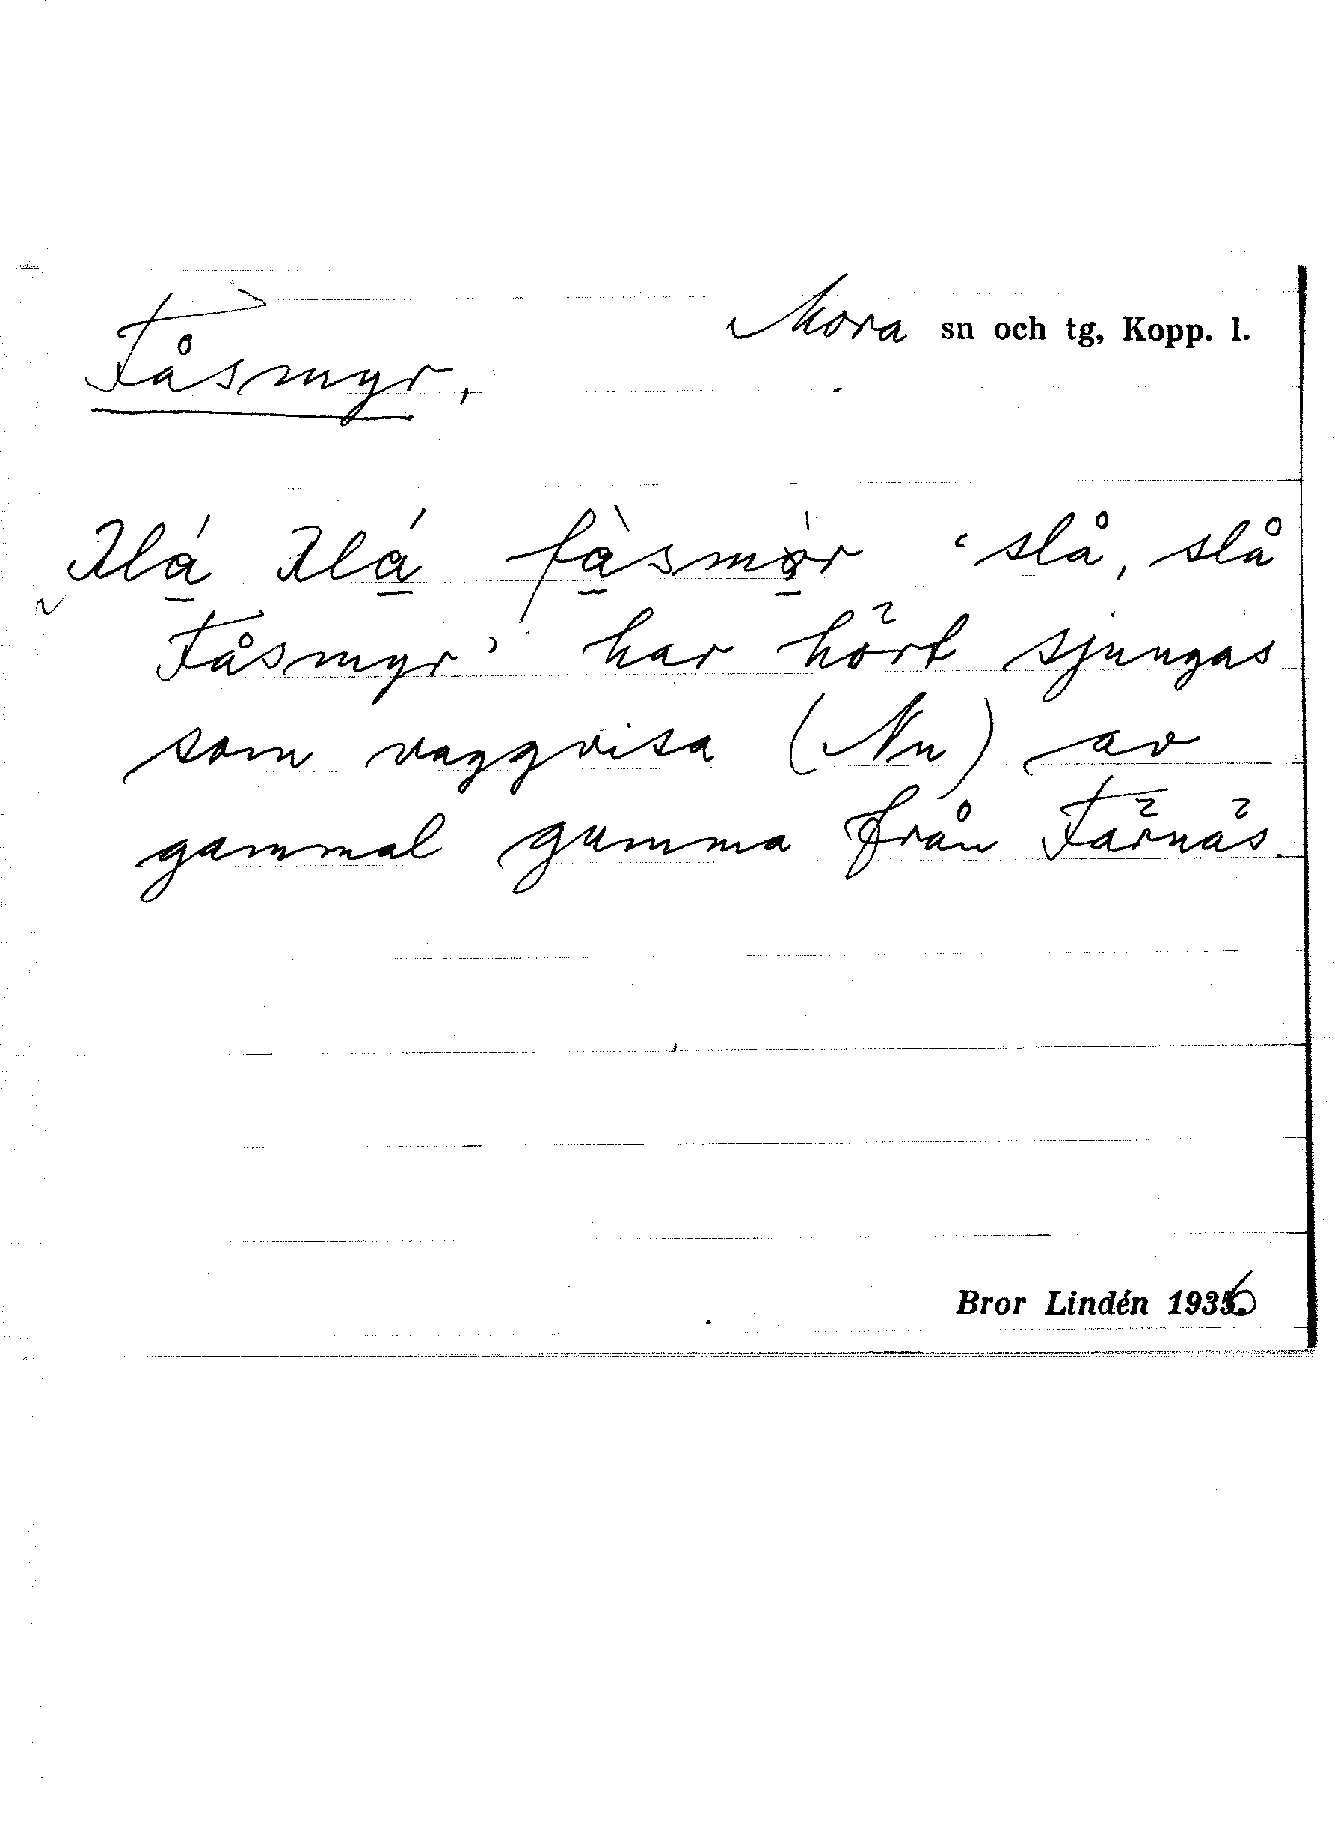 Mora sn och tg, Kopp. l.
Fåsmyr,
fàsmør ‘slå, slå
Fåsmyr’ har hört sjungas
som vaggvisa (Nu) av
gammal gumma från Färnäs.
Bror Lindén 1936